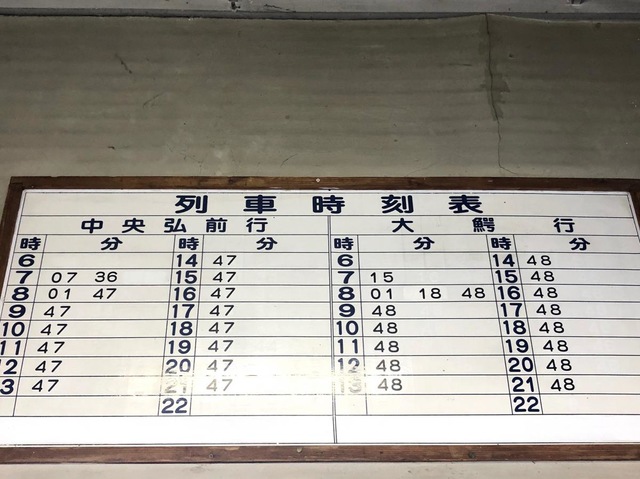 列車時刻表
中央弘前行 大鰐行
時 分 時 分 時 分 時 分
6 14 47 6 14 48
7 07 36 15 47 7 15 15 48
8 01 47 16 47 8 01 18 48 16 48
9 47 17 47 9 48 17 48
10 47 18 47 10 48 18 48
11 47 19 47 11 48 19 48
12 47 20 47 12 48 20 48
3 47 21 47 13 48 21 48
22 22